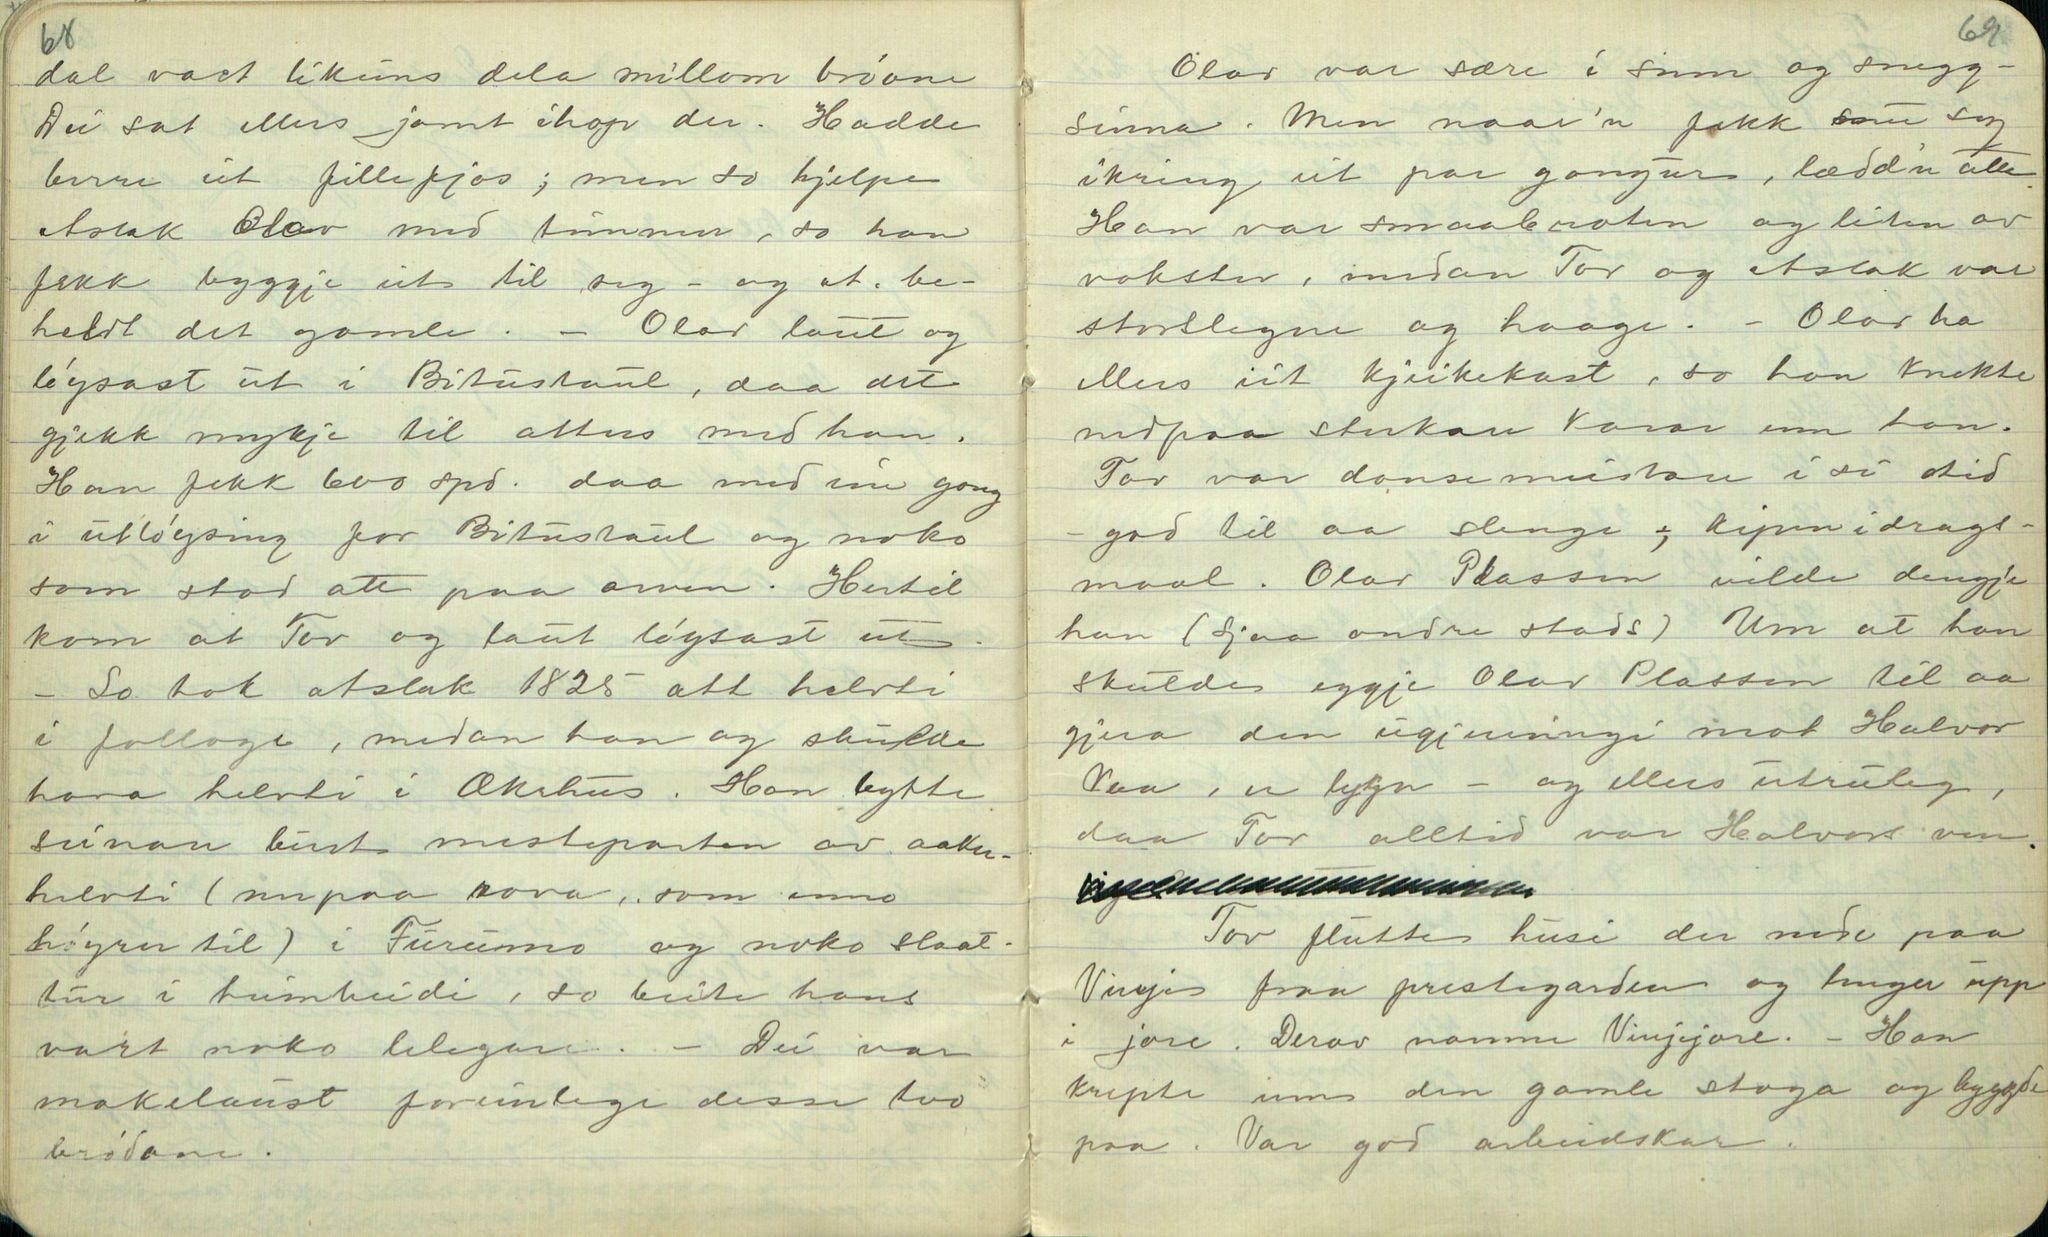 68
dal vart likeins dela millom bröane
Dei sat ellers jamt ihop der. Hadde
berre eit fillefjos; men so hjelpe
Aslak Olav med timmer, so han
fekk byggje eit til seg - og A. be-
heldt det gamle. - Olav laut og
löysast ut i Bitustaul, daa det
gjekk mykje til atters med han.
Han fekk 600 spd. daa med ein gong
i utlöysing for Bitustaul og noko
som stod att paa arven. Hertil
kom at Tov og laut löysast ut.
- So tok Aslak 1825 att helvti
i folloge, medan han og skulde
hava helvti i Økrhus. Han bytte
seinare burt mesteparten av aaker-
helvti (nupaa nova, som enno
höyrer til) i Furumo og noko slaat-
tur i heimheidi, so beite hans
vart noko lelegare. - Dei var
makelaust foreinlege desse two
brödane.
69
Olav var sære i sinn og snegg-
sinna. Men naar'n fekk snu seg
ikring eit par gongur, lædd'n atte.
Han var smaabroten og liten av
vokster, medan Tov og Aslak var
storllegne og haage. - Olav ha
ellers eit kjeikekast, so han knekte
nedpaa sterkare karar enn han.
Tov var dansemeistare i si tid
- god til aa slenge; kipen i drags-
maal. Olav Plassen vilde dengje
han (sjaa andre stads) Um at han
skulde eggje Olav Plassen til aa
gjera den ugjerningi mot Halvor
Vaa, er lygn - og ellers utruleg,
daa Tov alltid var Halvors ven.
Tov flutte husi der nede paa
Vinje fraa prestegarden og lenger upp
i jore. Derav namne Vinjejore. - Han
krepte um den gamle stoga og bygde
paa. Var god arbeidskar.